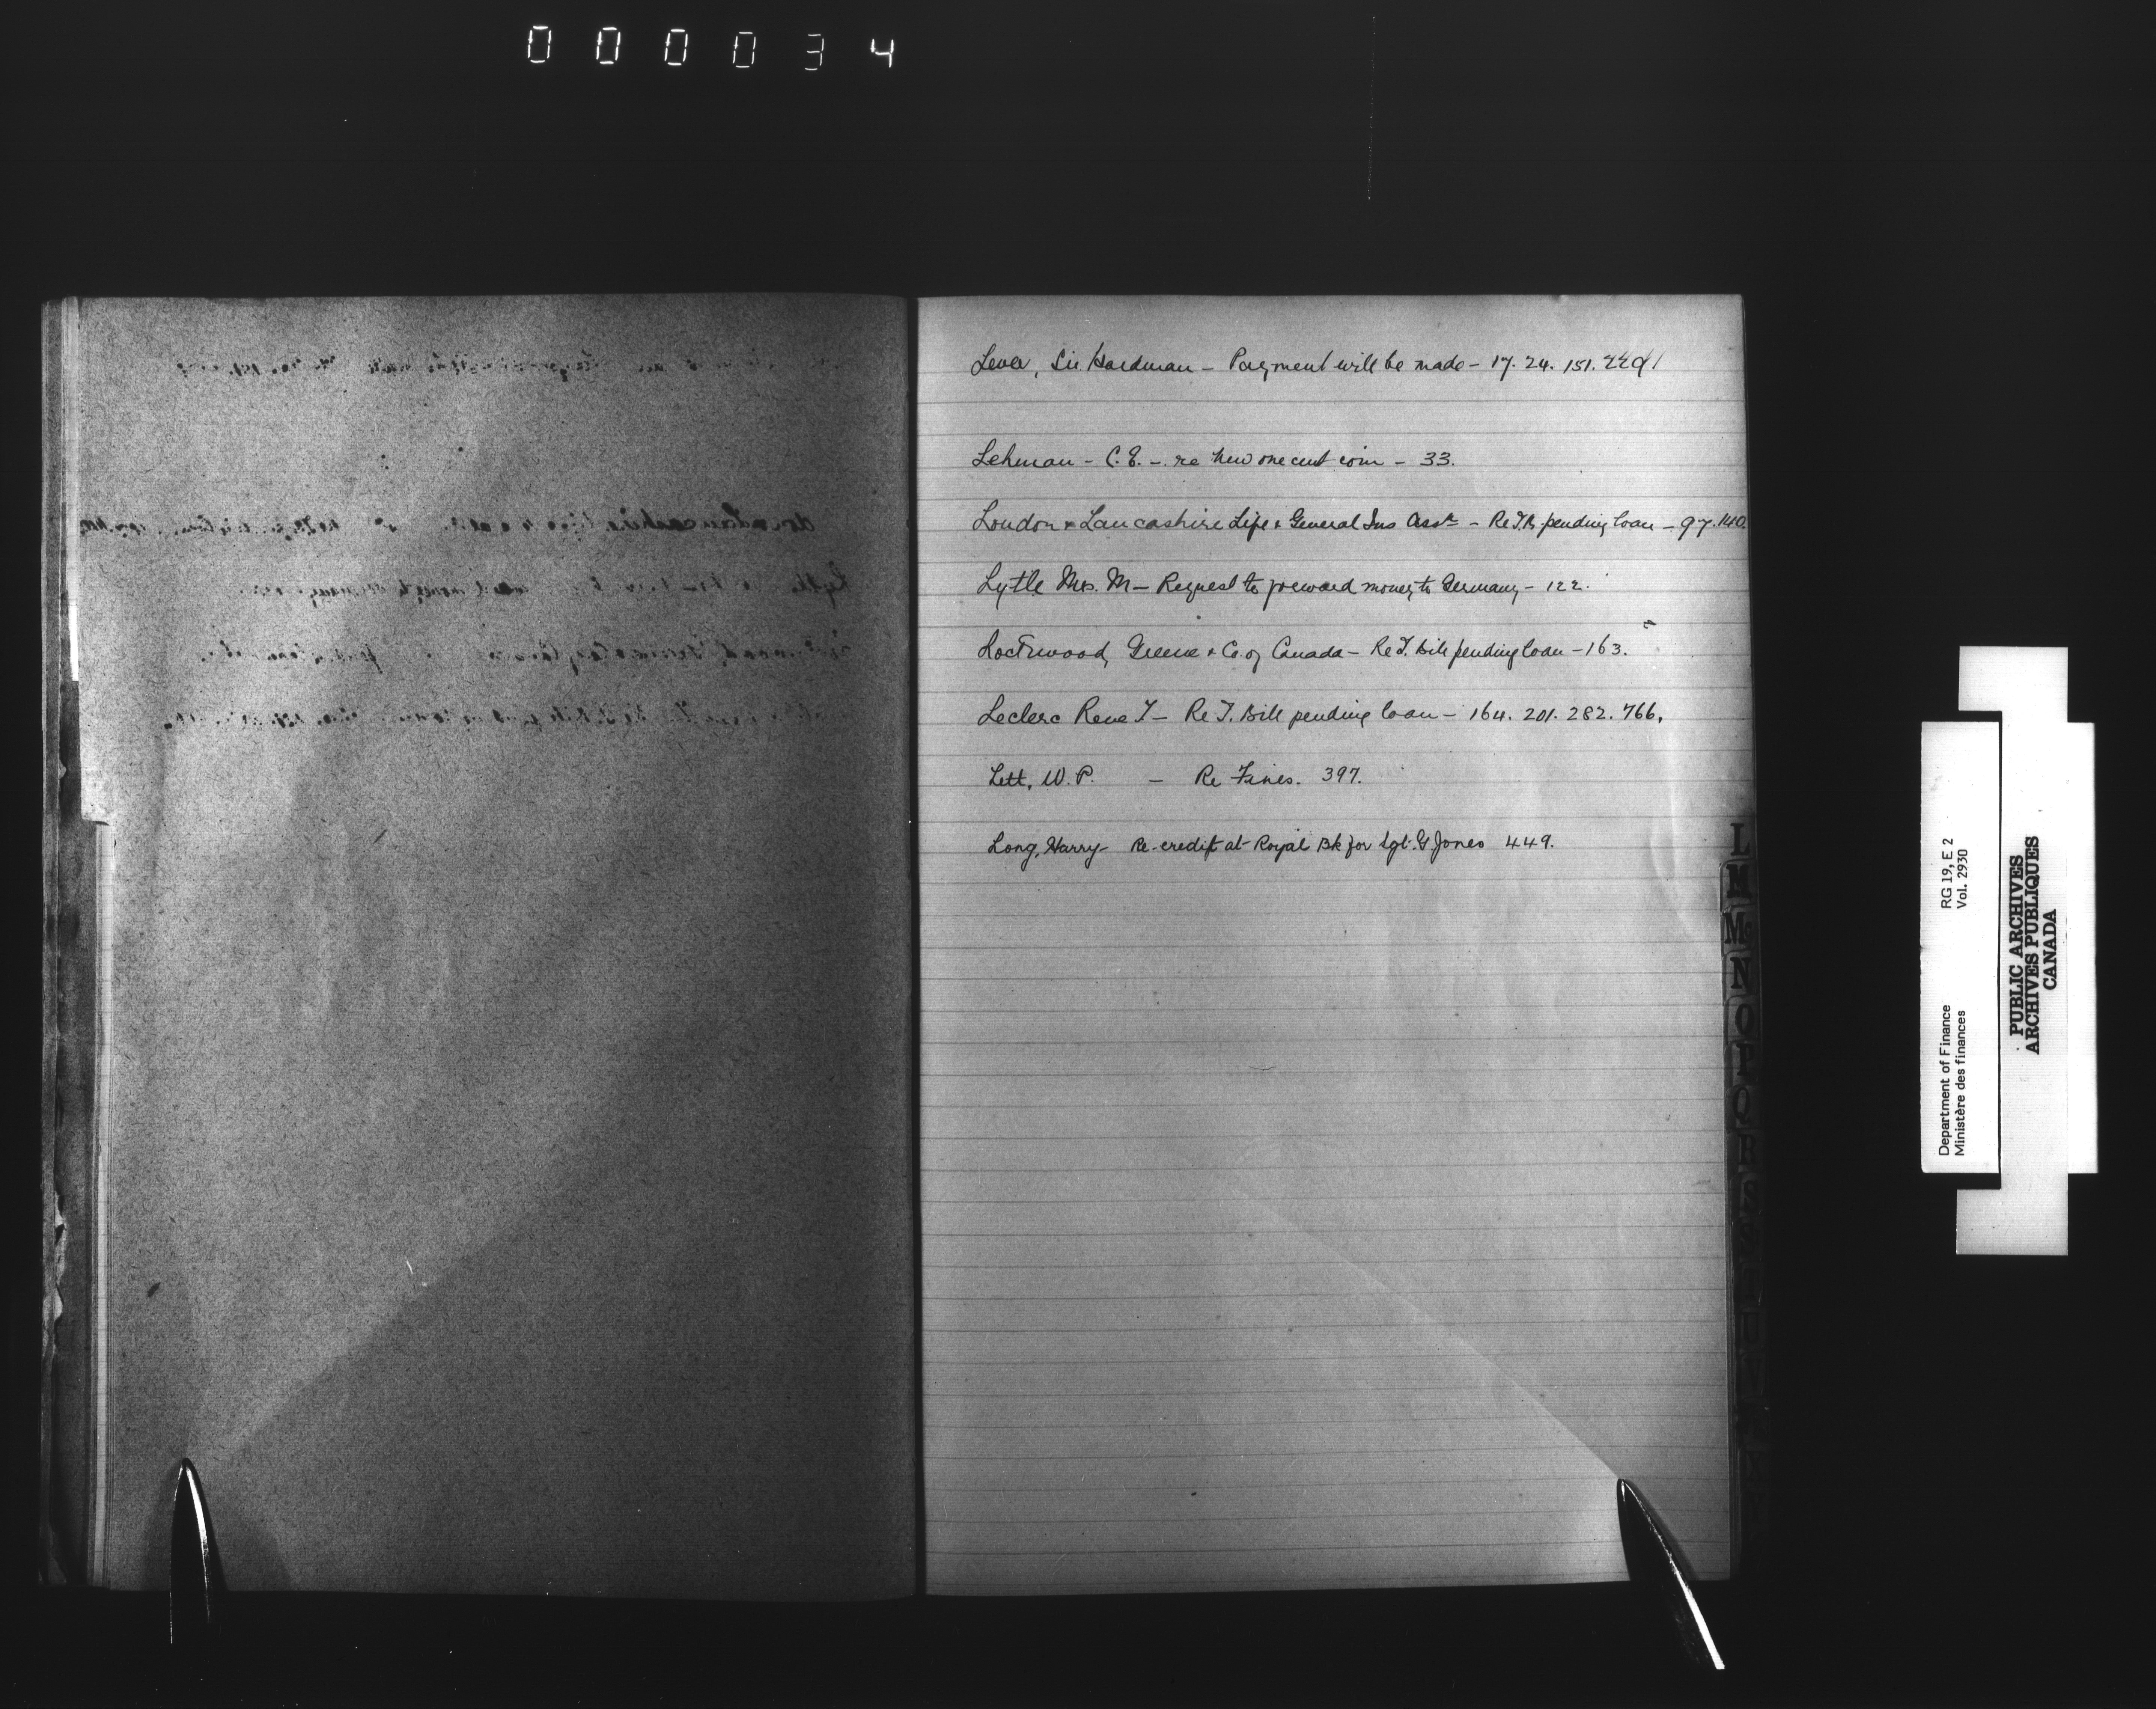 000034
Lever, Sir Hardman - Payment will be made - 17. 24. 151.
Lehman - C. E. - re new one cent coin - 33.
London & Lancashire Life & General Ins Assn - Re T.B. pending loan - 97. 140.
Lytle Mrs. M - Request to forward money to Germany - 122.
Lockwood, Greene & Co. of Canada - Re T. Bill pending loan - 163.
Leclerc Rene T - Re T. Bill pending loan - 164. 201. 282. 766.
Lett, W. P. - Re Fines. 397.
Long, Harry - Re credit at Royal Bk for Sgt. G Jones 449.
L
M
Mc
N
O
P
Q
R
S
Department of Finance RG 19, E 2
Ministère des finances Vol. 2930
PUBLIC ARCHIVES
ARCHIVES PUBLIQUES
CANADA